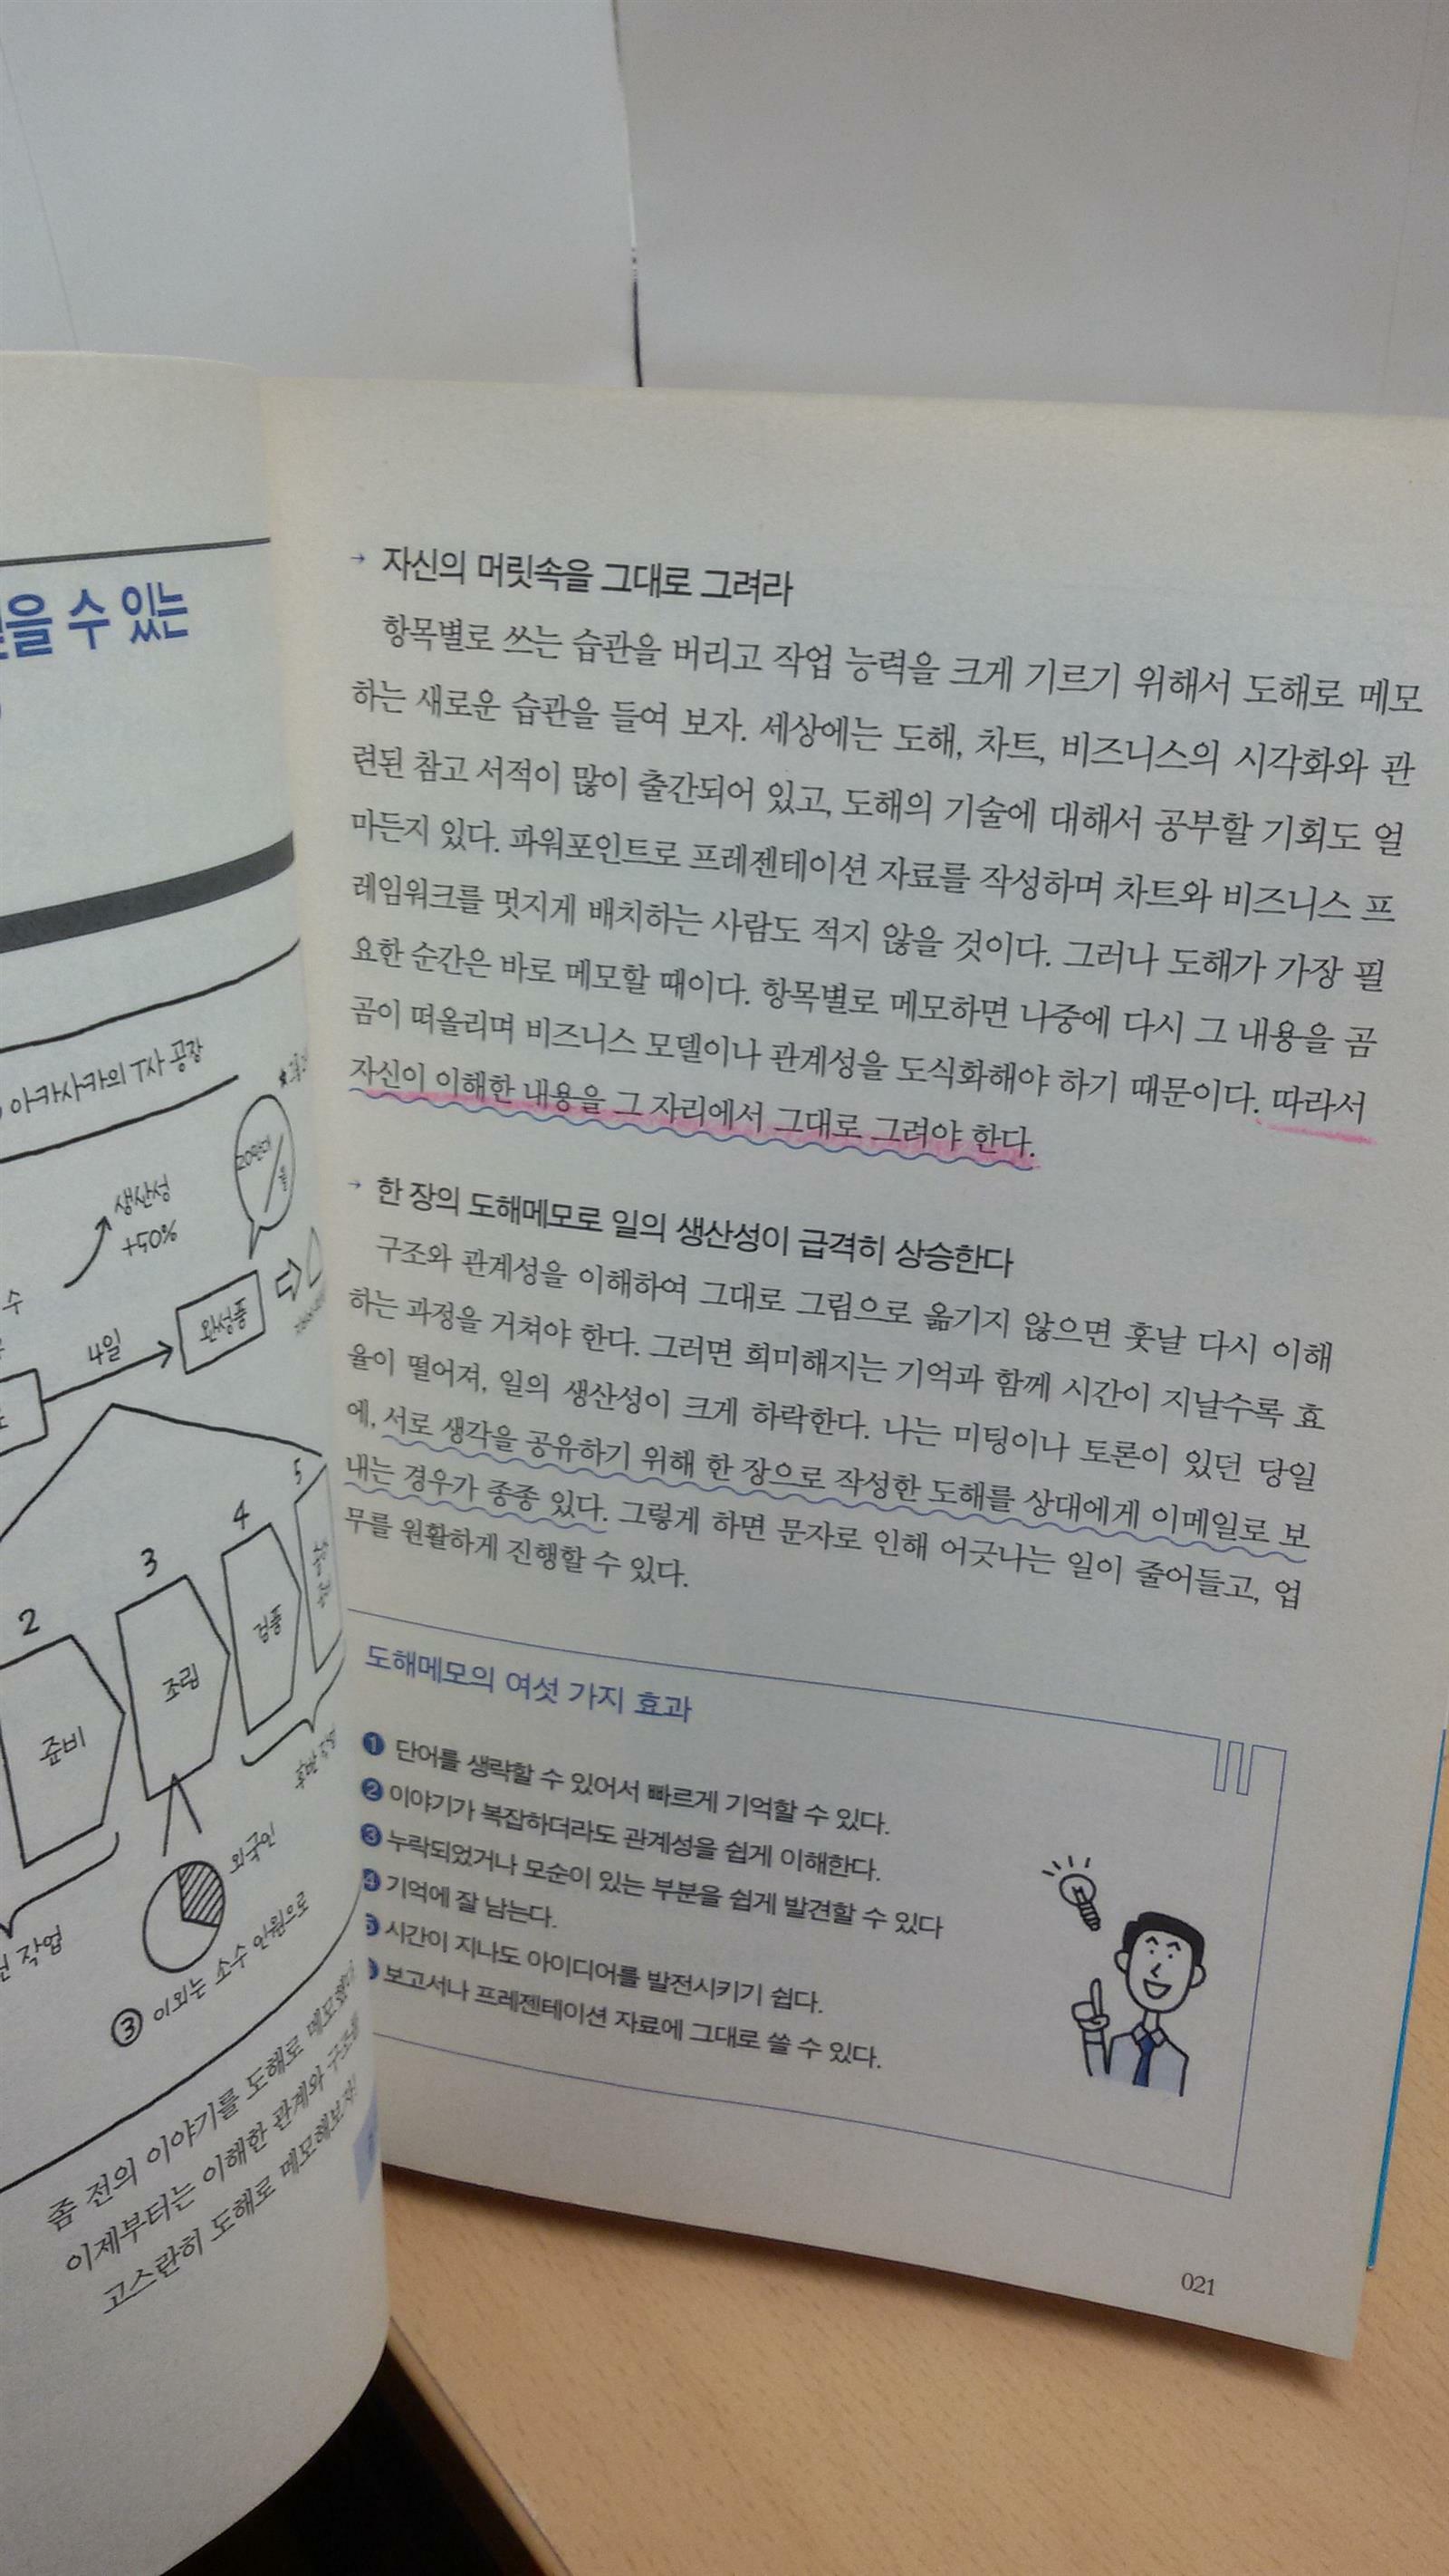 을 수 있는
아카사카의 T사 공장
생산성
+50%
20만대
월
수
4일
완성품
2
3
4
5
준비
조립
검품
외국인
작업
③ 이외는 소수 인원으로
좀 전의 이야기를 도해로 메모했다.
이제부터는 이해한 관계와 구조를
고스란히 도해로 메모해보자!
→ 자신의 머릿속을 그대로 그려라
항목별로 쓰는 습관을 버리고 작업 능력을 크게 기르기 위해서 도해로 메모
하는 새로운 습관을 들여 보자. 세상에는 도해, 차트, 비즈니스의 시각화와 관
련된 참고 서적이 많이 출간되어 있고, 도해의 기술에 대해서 공부할 기회도 얼
마든지 있다. 파워포인트로 프레젠테이션 자료를 작성하며 차트와 비즈니스 프
레임워크를 멋지게 배치하는 사람도 적지 않을 것이다. 그러나 도해가 가장 필
요한 순간은 바로 메모할 때이다. 항목별로 메모하면 나중에 다시 그 내용을 곰
곰이 떠올리며 비즈니스 모델이나 관계성을 도식화해야 하기 때문이다. 따라서
자신이 이해한 내용을 그 자리에서 그대로 그려야 한다.
→ 한 장의 도해메모로 일의 생산성이 급격히 상승한다
구조와 관계성을 이해하여 그대로 그림으로 옮기지 않으면 훗날 다시 이해
하는 과정을 거쳐야 한다. 그러면 희미해지는 기억과 함께 시간이 지날수록 효
율이 떨어져, 일의 생산성이 크게 하락한다. 나는 미팅이나 토론이 있던 당일
에, 서로 생각을 공유하기 위해 한 장으로 작성한 도해를 상대에게 이메일로 보
내는 경우가 종종 있다. 그렇게 하면 문자로 인해 어긋나는 일이 줄어들고, 업
무를 원활하게 진행할 수 있다.
도해메모의 여섯 가지 효과
❶ 단어를 생략할 수 있어서 빠르게 기억할 수 있다.
❷ 이야기가 복잡하더라도 관계성을 쉽게 이해한다.
❸ 누락되었거나 모순이 있는 부분을 쉽게 발견할 수 있다
❹ 기억에 잘 남는다.
❺ 시간이 지나도 아이디어를 발전시키기 쉽다.
보고서나 프레젠테이션 자료에 그대로 쓸 수 있다.
021